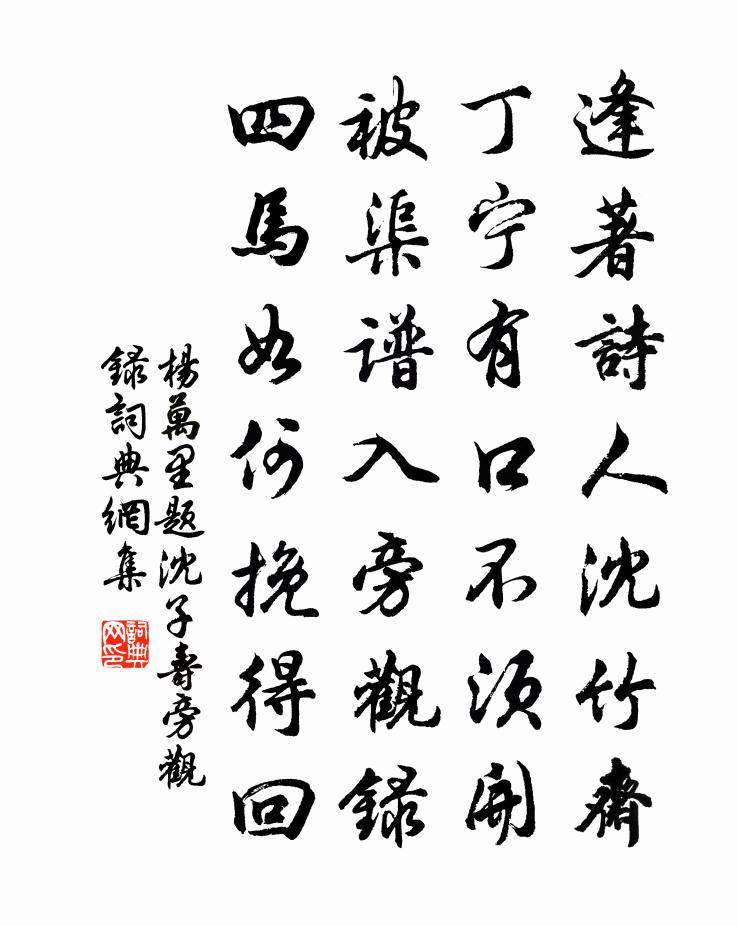 逢著詩人沈竹齋
丁宁有口不須開
被渠谱入旁觀錄
四馬如何挽得回
楊萬里题沈子壽旁觀
錄詞典網集
詞典
网印